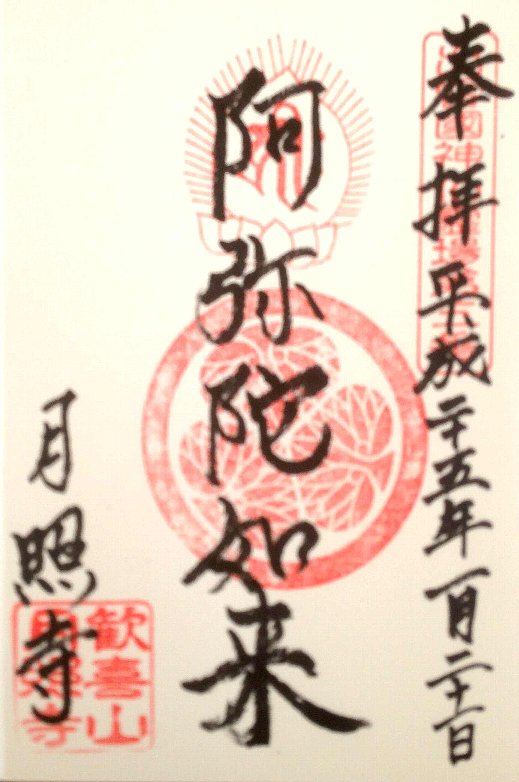 奉拝 平成二十五年一月二十一日
國神
阿弥陀如来
月照寺
歓喜山
月照寺